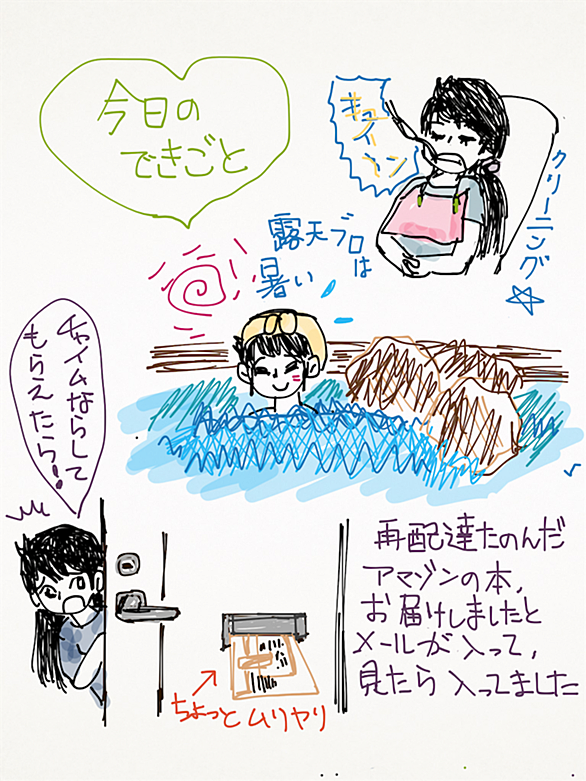 今日の
できごと
キュイーン
クリーニング☆
露天ブロは
暑い
チャイムならして
もらえたら!
再配達たのんだ
アマゾンの本、
お届けしましたと
メールが入って、
見たら入ってました
ちょっとムリヤリ